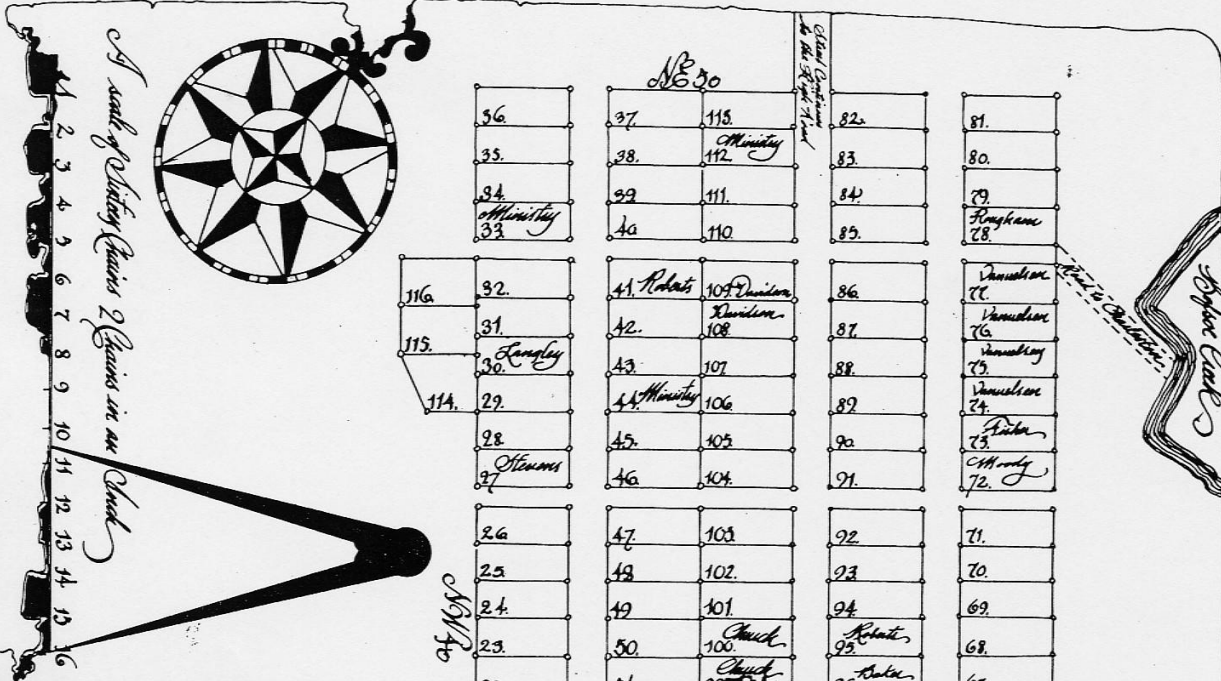 A scale of Sixteen Chains 2 Chains in an Inch
1
2
3
4
5
6
7
8
9
10
11
12
13
14
15
16
NE 50
NW 40
Street Continues to the High Road
36.
35.
34.
Ministry
33.
32.
31.
Langley
30.
29.
28.
Stevens
27
26
25.
24.
23.
116.
115.
114.
37.
38.
39
40
41. Roberts
42.
43.
44. Ministry
45.
46.
47.
48
49
50.
113.
Ministry
112.
111.
110.
109. Davidson
Davidson
108.
107
106
105.
104.
103.
102.
101.
Church
100.
Church
82.
83.
84.
85.
86.
87.
88.
89.
90.
91.
92
93.
94.
Roberts
95.
Baker
81.
80.
79.
78.
77.
Vanvelsen
76.
75.
74.
Fisher
73.
Moody
72.
71.
70.
69.
68.
Road to Charleston
Creek